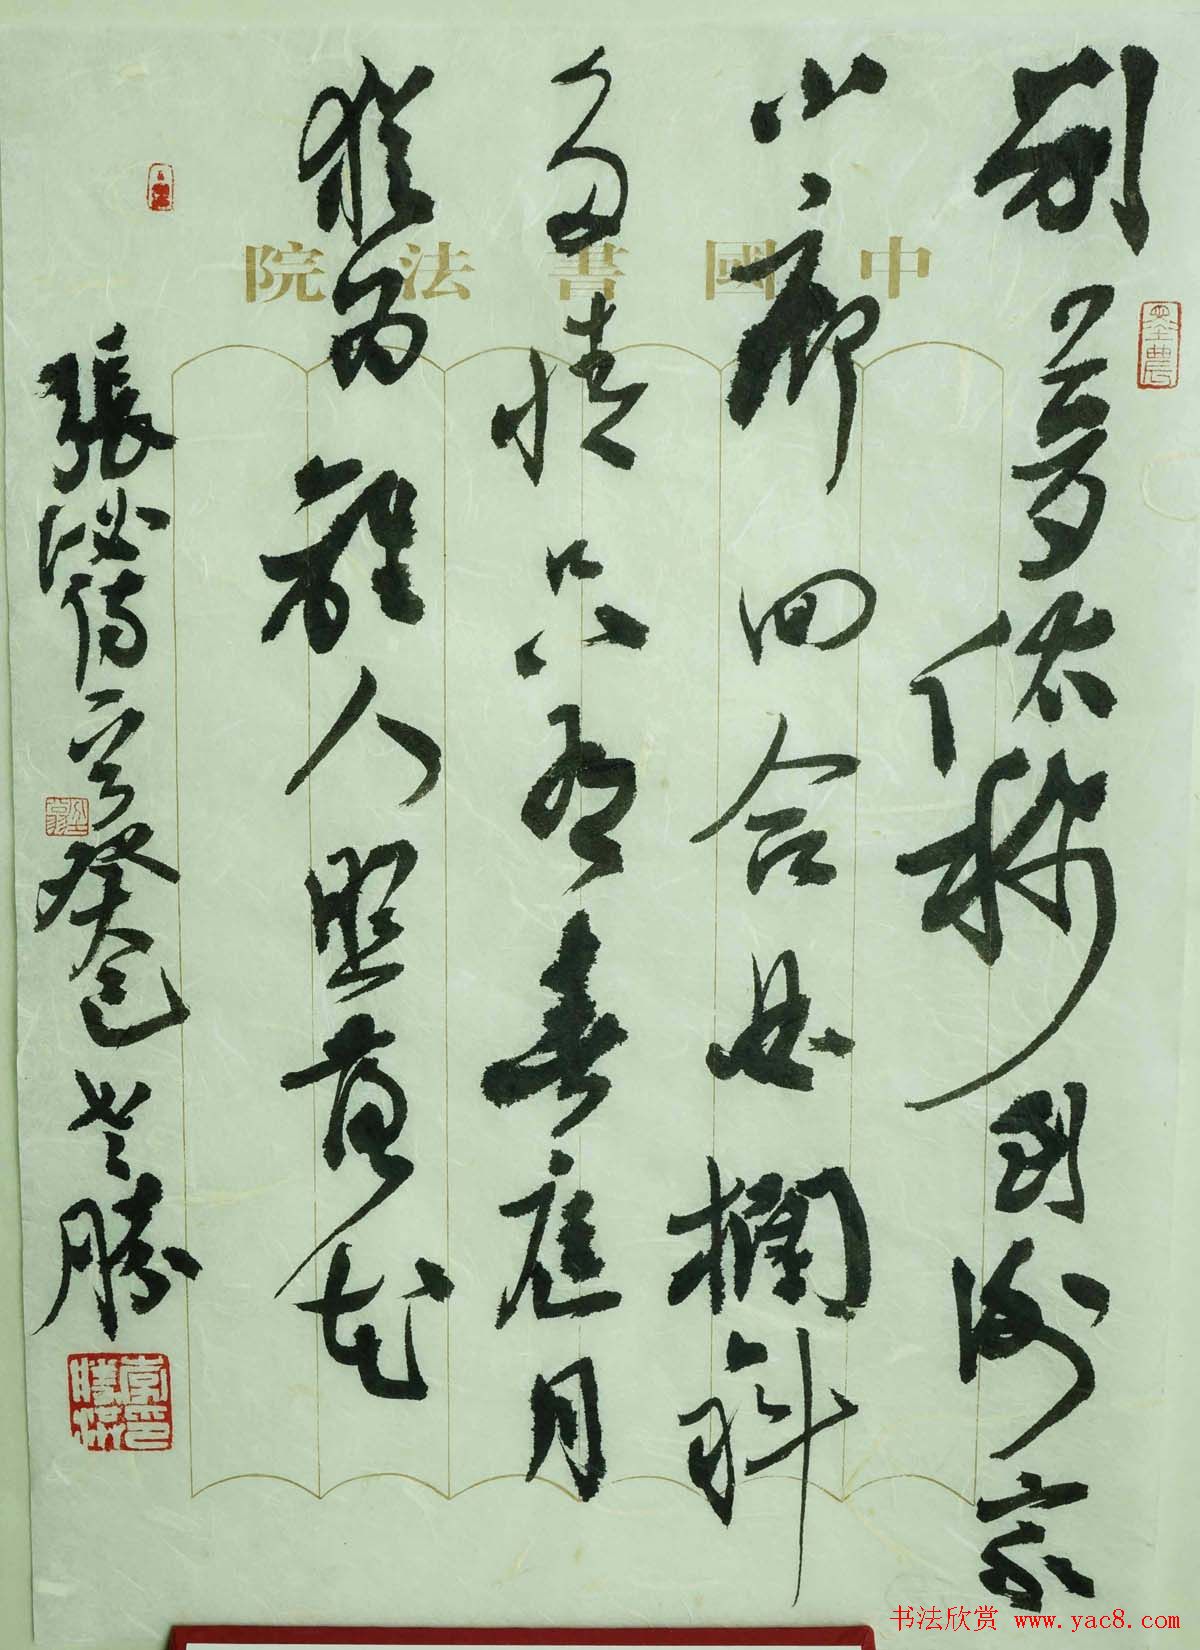 中國書法院
别夢依稀到謝家
小廊回合曲欄斜
多情只有春庭月
猶為離人照落花
張泌 癸巳 勝
书法欣赏 www.yac8.com